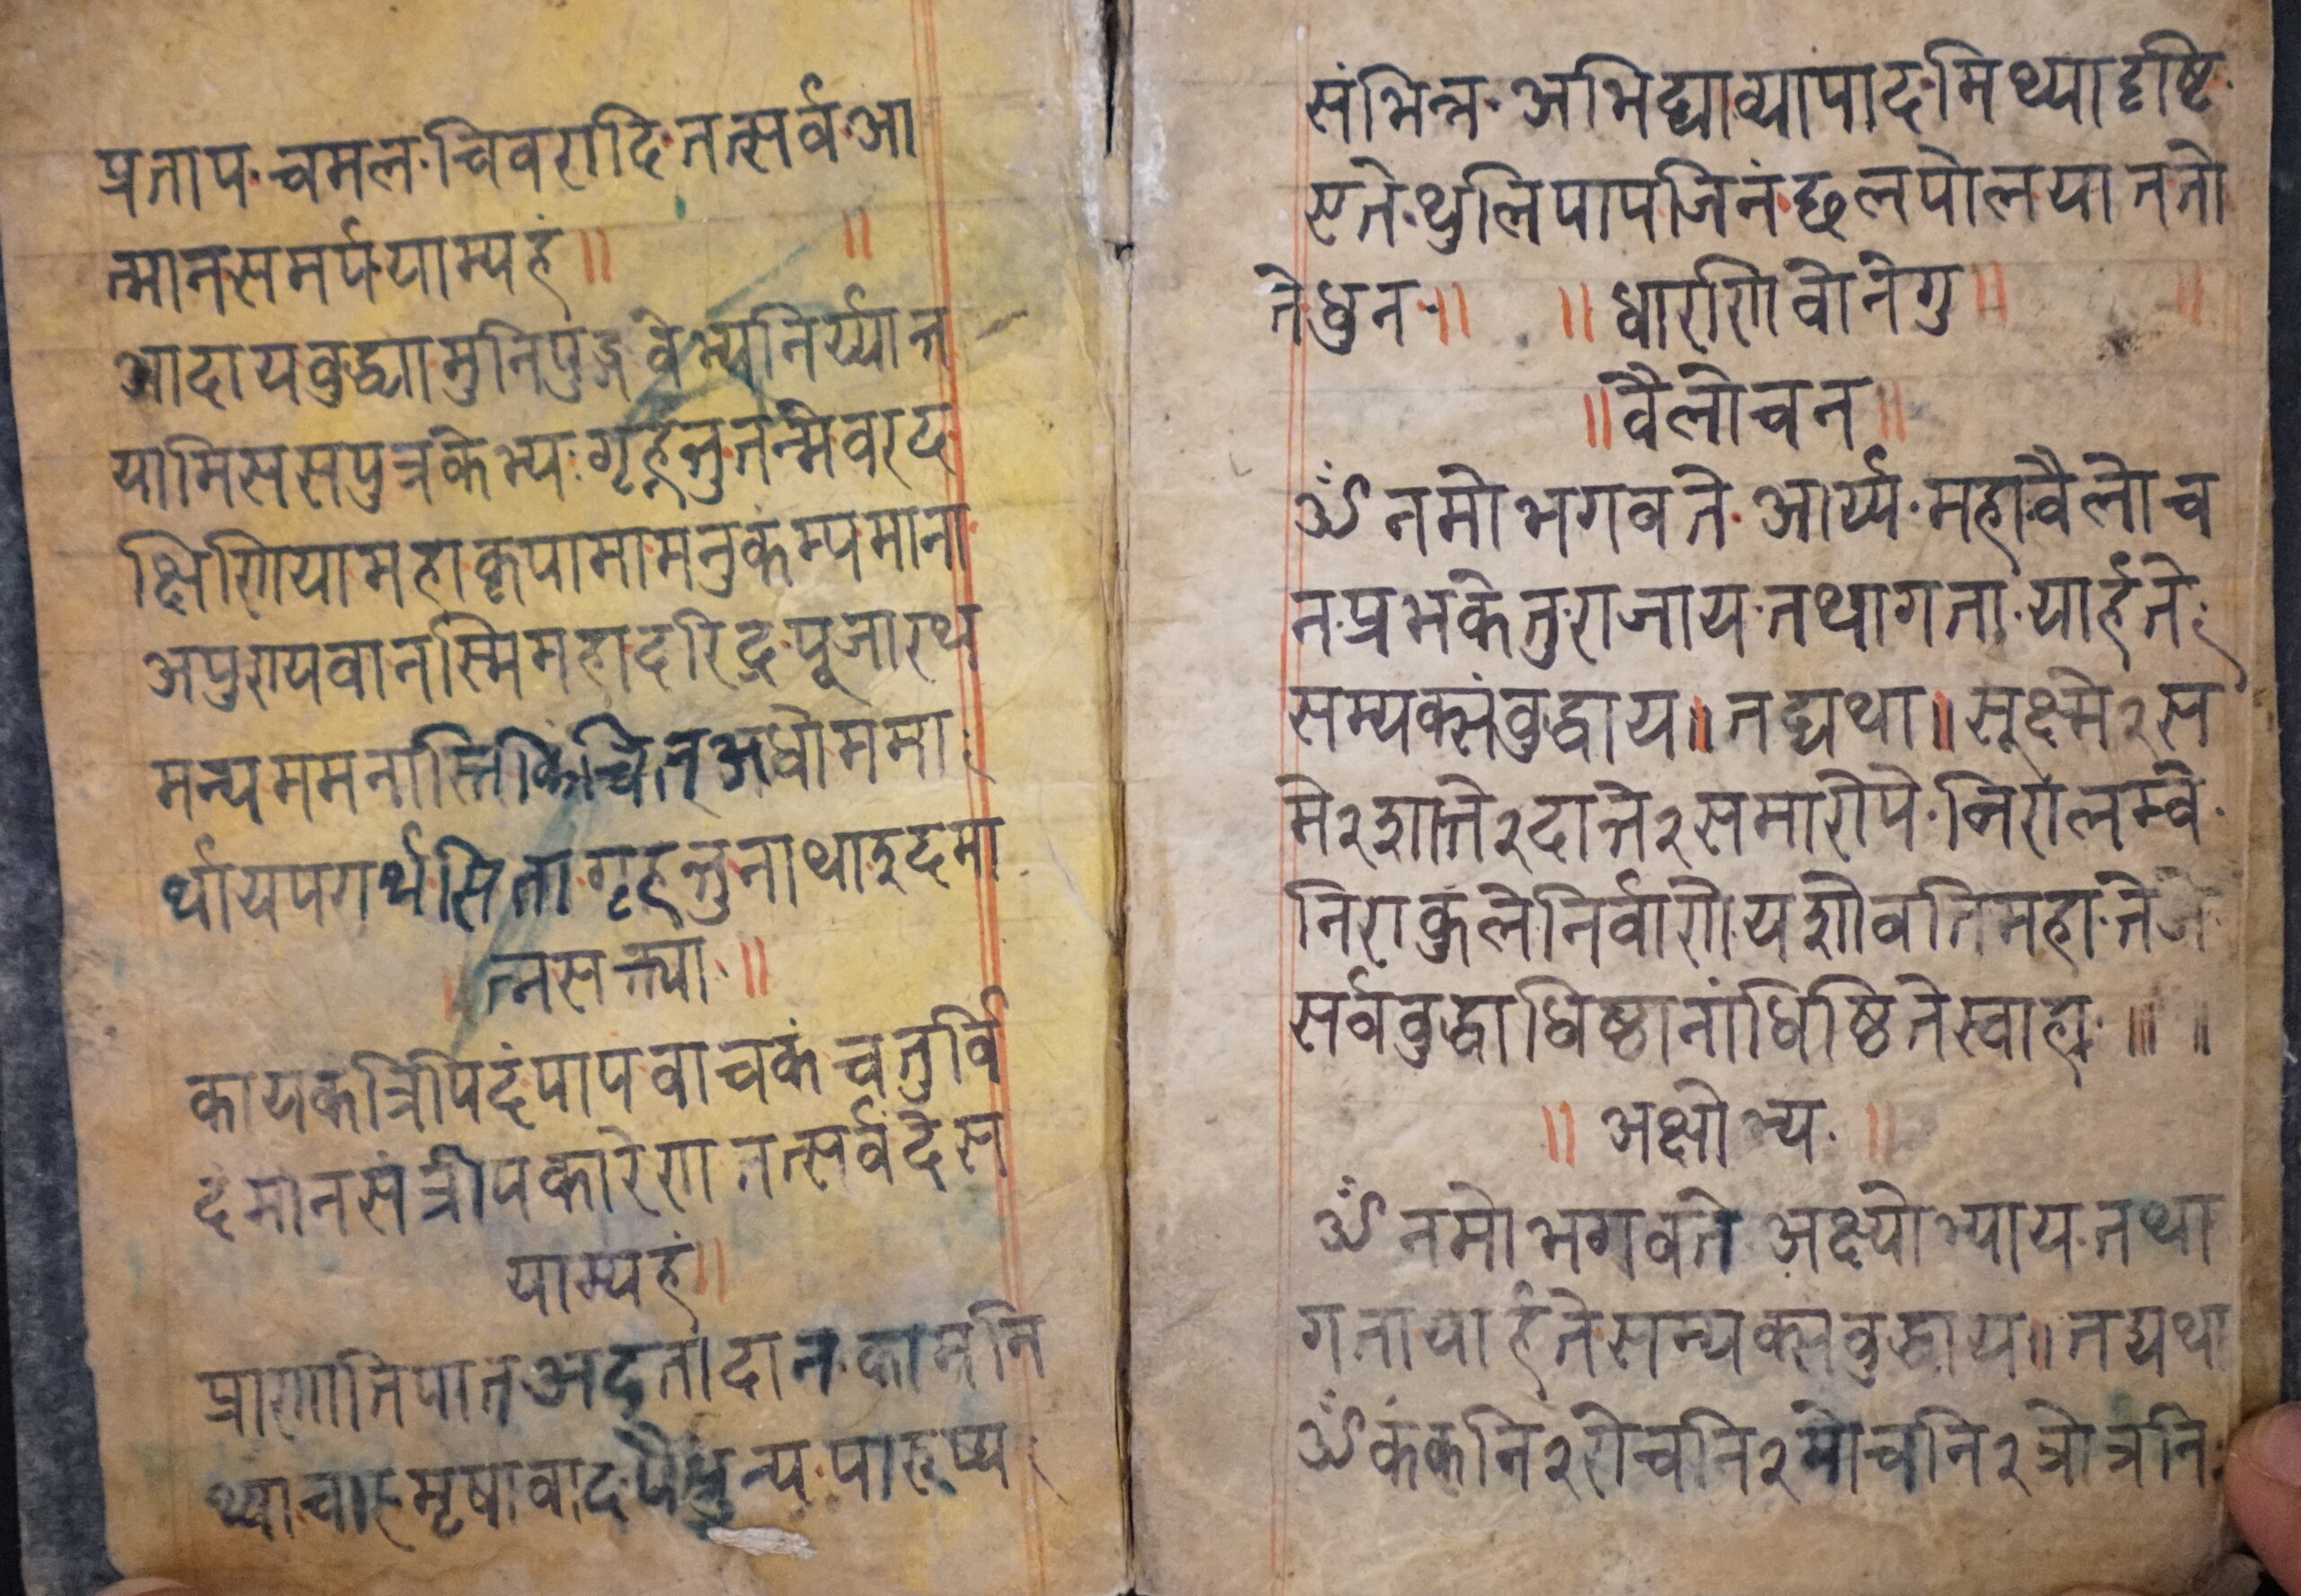 प्रताप·चमल·चिवरादि·तत्सर्व·आ
त्मानसमर्पयाम्यहं॥ ॥
आदायवुद्ध्यामुनिपुङ्गवेभ्यनिर्य्यात
यामिससपुत्रकेभ्य·गृह्नन्तुतन्मेवरद
क्षिणियामहाकृपामामनुकंम्पमाना
अपुण्यवानस्मिमहादरिद्र·पूजारथ
मन्यममनास्तिकिंचित्अथोममा·
र्थायपगर्थसिता·गृह्नन्तुनाथाइदमा
॥त्नसत्त्या·॥
कायकत्रिपिदंपापवाचकंचतुर्वि
दंमानसंत्रीपकारेणतत्सर्वदेस
याम्यहं॥
प्राणातिपात·अदत्तादान·काममि
थ्याचारमृषावाद·पैशुन्य·पारुष्य·
संभिन्न·अभिद्याव्यापाद·मिथ्यादृष्टि·
एते·थुलिपापजिनंछलपोलयाततो
तेधुन·॥ ॥धारणिवोनेगु॥ ॥
॥वैलोचन॥
ॐनमोभगवते·आर्य्य·महावैलोच
न·प्रभकेतुराजाय·तथागतायार्हंते·
सम्यक्संवुद्धाय॥तद्यथा॥सूक्ष्मे२स
मे२शान्ते२दान्ते२समारोपे·निरालम्वे·
निराकुलेनिर्वाणेयशोवतिमहातेजे
सर्ववुद्धाधिष्ठानांधिष्ठितेस्वाहा·॥ ॥
॥अक्षोभ्य·॥
ॐनमोभगवते अक्ष्योभ्याय·तथा
गतायार्हंतेसम्यक्संवुद्धाय॥तद्यथा
ॐकंकनि२रोचनि२मोचनि२त्रोत्रनि